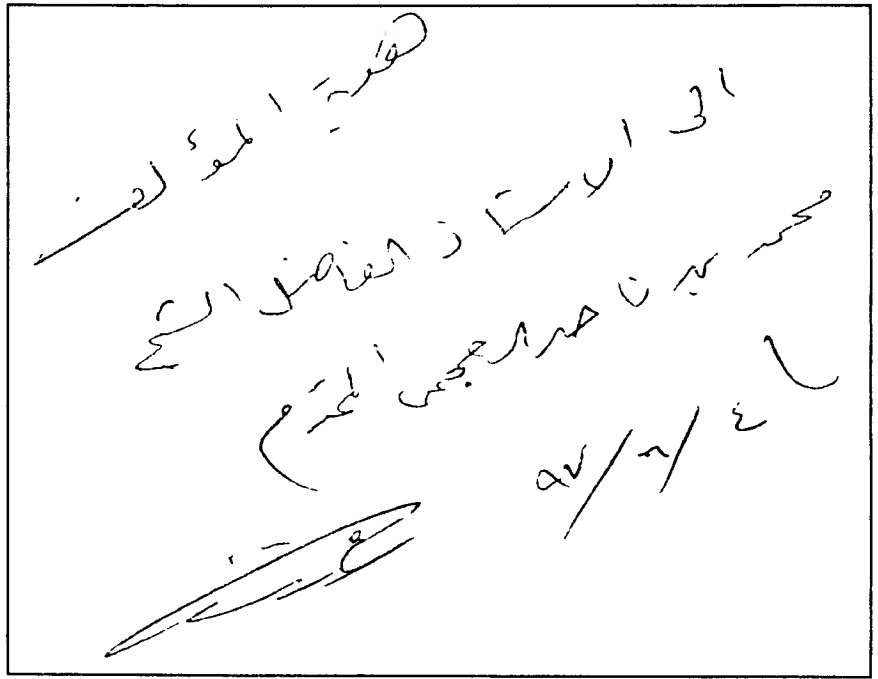 هدية المؤلف
الى الاستاذ الفاضل الشيخ
محمد بن ناصر العجمي المحترم
٩٧/ /٤